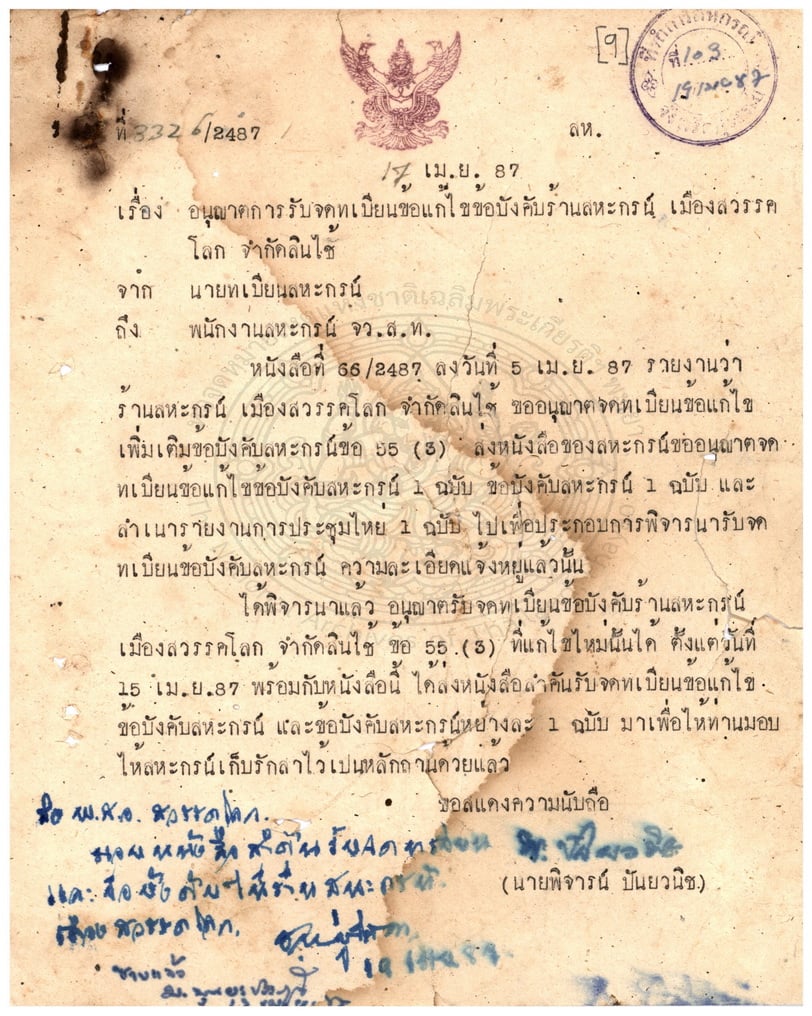 [9]
ที่ 3326/2487
สห.
ที่ 103
17 เม.ย. 87
เรื่อง อนุญาตการรับจดทเบียนข้อแก้ไขข้อบังคับร้านสหะกรน์ เมืองสวรรค
โลก จำกัดสินไช้
จาก นายทเบียนสหะกรน์
ถึง พนักงานสหะกรน์ จว.ส.ท.
หนังสือที่ 66/2487 ลงวันที่ 5 เม.ย. 87 รายงานว่า
ร้านสหะกรน์ เมืองสวรรคโลก จำกัดสินไช้ ขออนุญาตจดทเบียนข้อแก้ไข
เพิ่มเติมข้อบังคับสหะกรน์ข้อ 55 (3) ส่งหนังสือของสหะกรน์ขออนุญาตจด
ทเบียนข้อแก้ไขข้อบังคับสหะกรน์ 1 ฉบับ ข้อบังคับสหะกรน์ 1 ฉบับ และ
สำเนารายงานการประชุมไหย่ 1 ฉบับ ไปเพื่อประกอบการพิจารนารับจด
ทเบียนข้อบังคับสหะกรน์ ความละเอียดแจ้งหยู่แล้วนั้น
ได้พิจารนาแล้ว อนุญาตรับจดทเบียนข้อบังคับร้านสหะกรน์
เมืองสวรรคโลก จำกัดสินไช้ ข้อ 55 (3) ที่แก้ไขไหม่นั้นได้ ตั้งแต่วันที่
15 เม.ย.87 พร้อมกับหนังสือนี้ ได้ส่งหนังสือสำคันรับจดทเบียนข้อแก้ไข
ข้อบังคับสหะกรน์ และข้อบังคับสหะกรน์หย่างละ 1 ฉบับ มาเพื่อไห้ท่านมอบ
ไห้สหะกรน์เก็บรักสาไว้เปนหลักถานด้วยแล้ว
ขอสแดงความนับถือ
(นายพิจารน์ ปันยวนิช.)
พ.ส.อ. สวรรคโลก.
มอบหนังสือสำคันรับจดทะเบียน
และข้อบังคับไห้ร้านสหะกรน์
เมืองสวรรคโลก.
19 เม.ย. 87
ทราบแล้ว